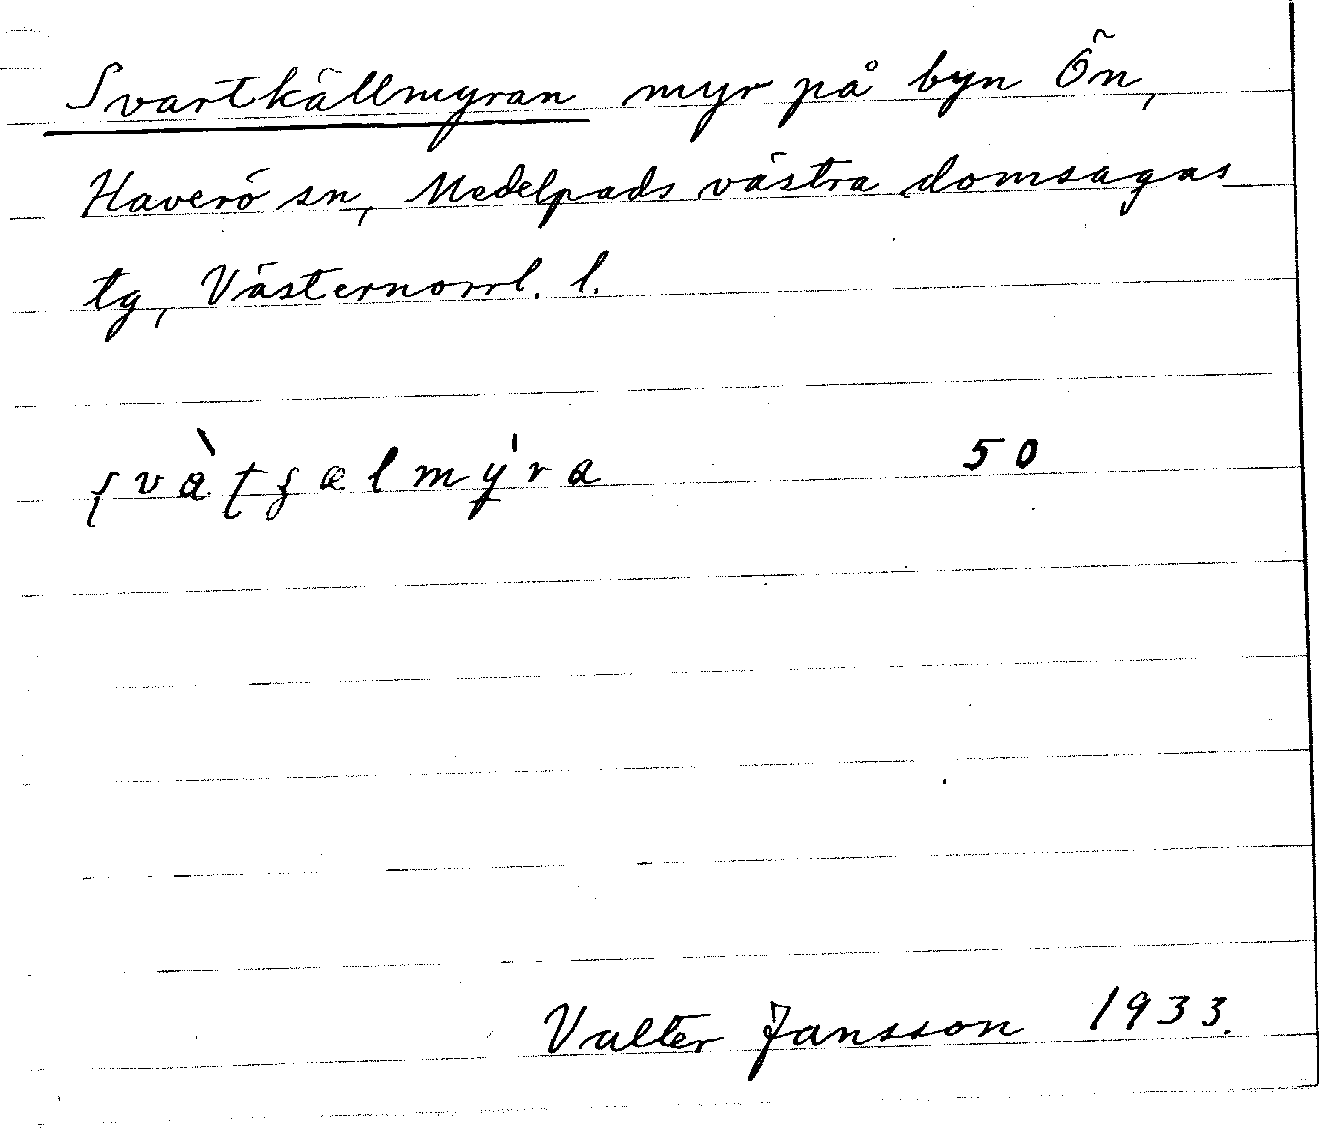 Svartkällmyran myr på byn Ön,
Haverö sn, Medelpads västra domsagas
tg, Västernorrl. l.
50
Valter Jansson 1933.